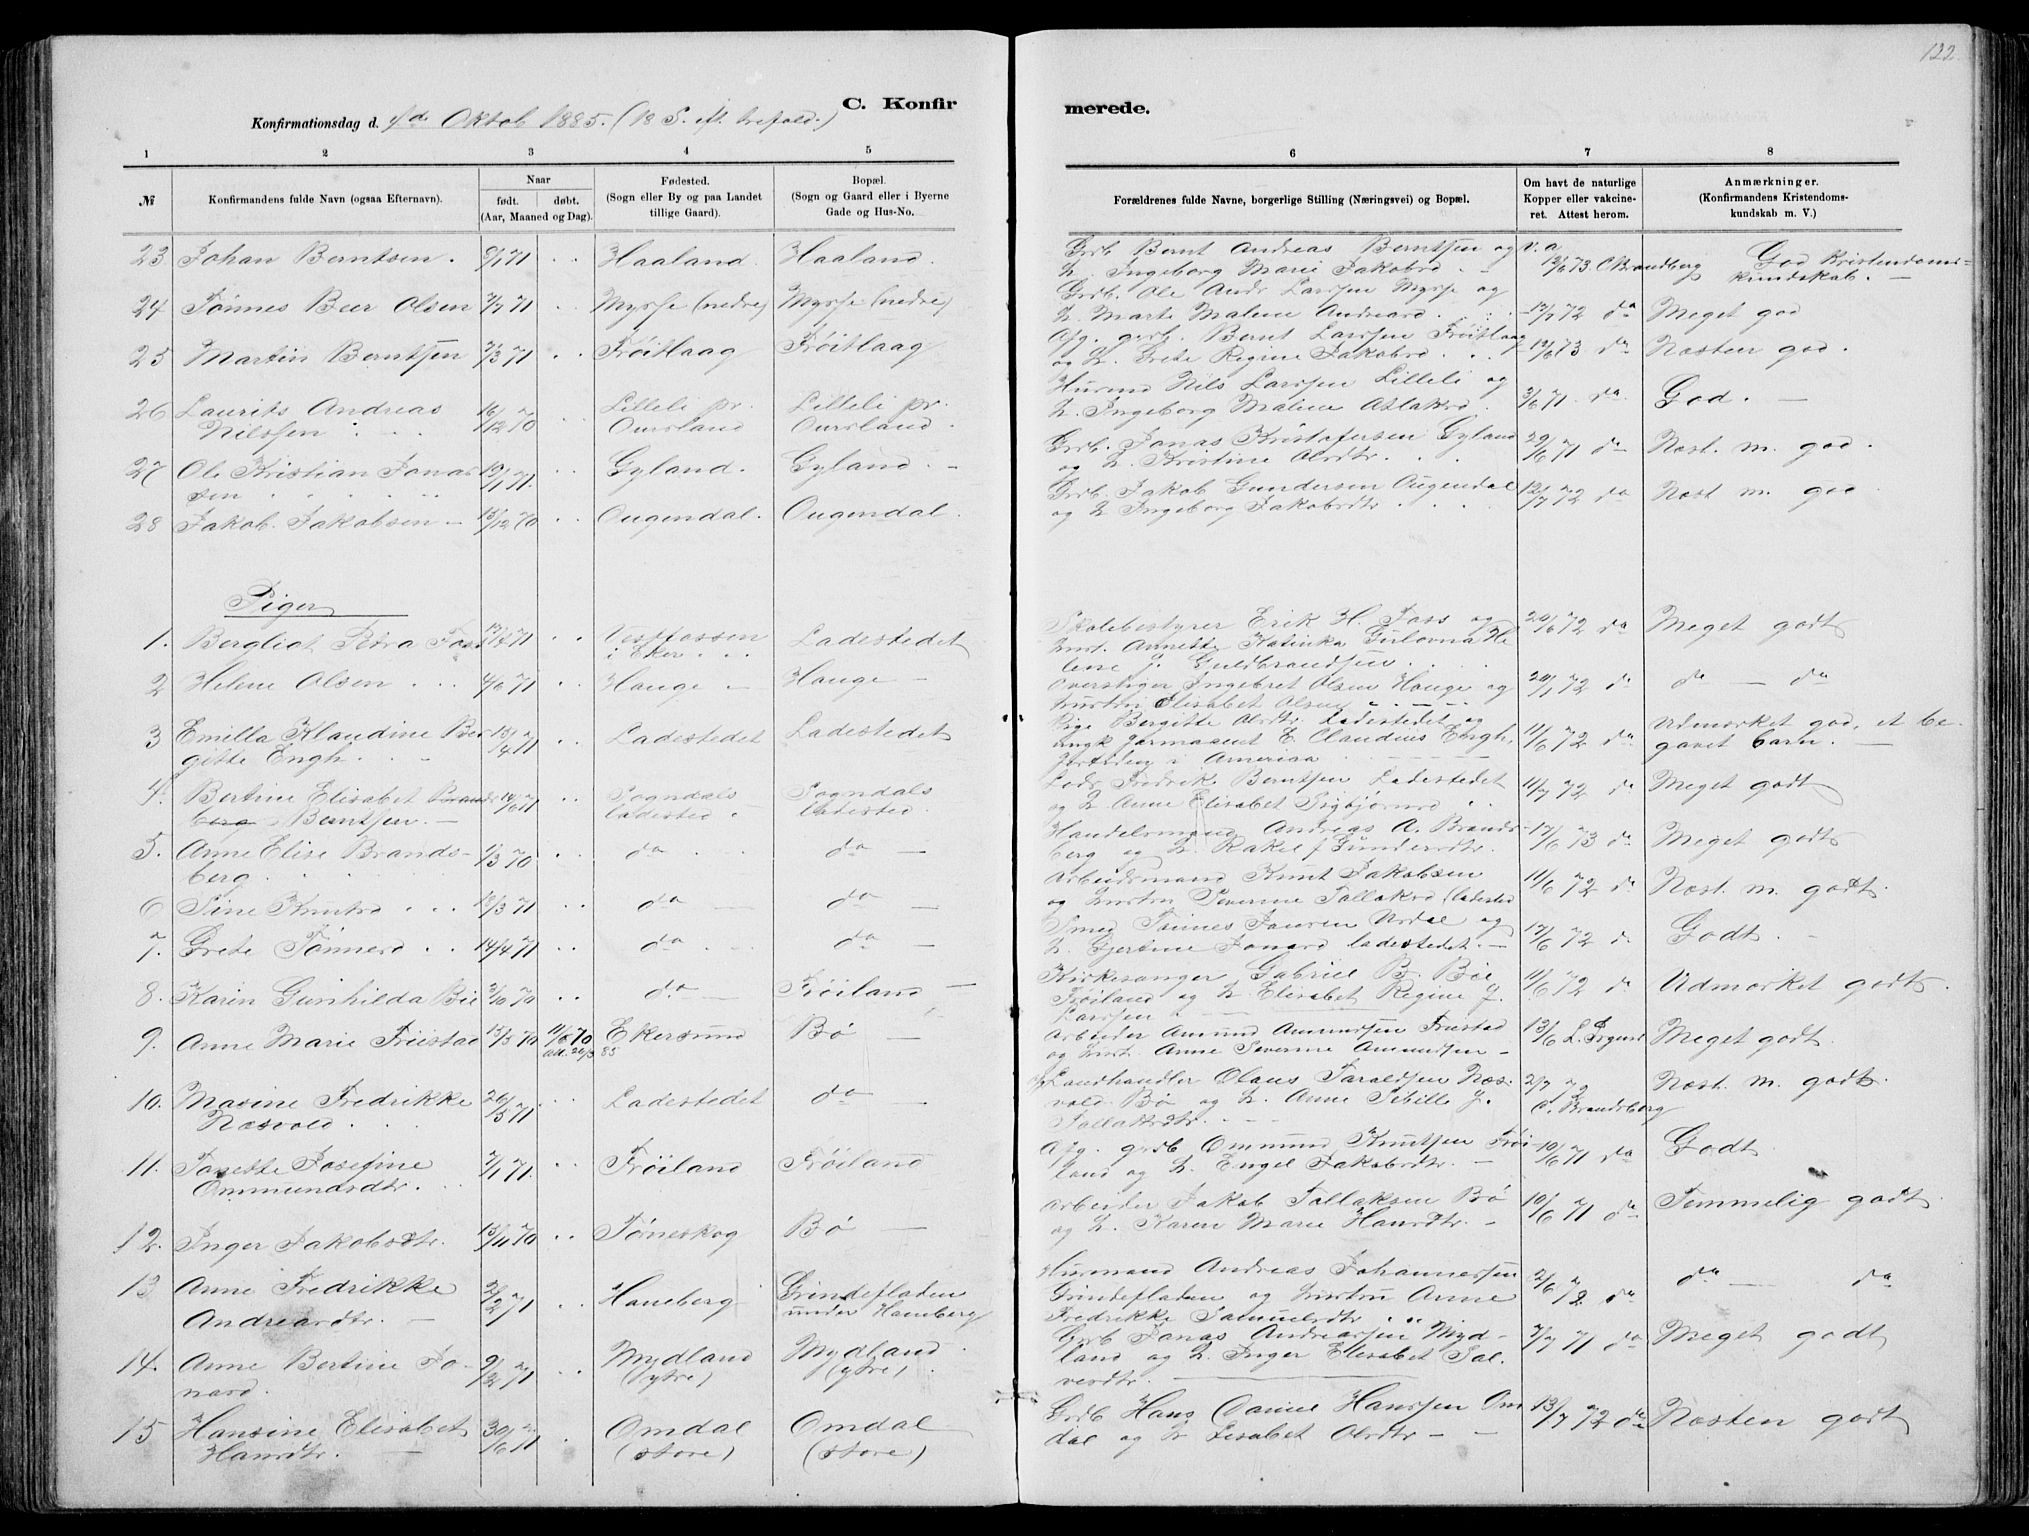 122
C. Konfir
merede.
Konfirmationsdag d. 4de Oktob 1885. (18 S. eft. trefold.)
1 2 3 4 5
6 7 8
№ Konfirmandens fulde Navn (ogsaa Efternavn).
Naar
født. døbt.
(Aar, Maaned og Dag).
Fødested.
(Sogn eller By og paa Landet
tillige Gaard).
Bopæl.
(Sogn og Gaard eller i Byerne
Gade og Hus-No.
Forældrenes fulde Navne, borgerlige Stilling (Næringsvei) og Bopæl.
Om havt de naturlige
Kopper eller vakcine-
ret. Attest herom.
Anmærkninger.
(Konfirmandens Kristendoms-
kundskab m. V.)
23 Johan Berntsen. 9/1 71 Haaland. Haaland.
Grdb Bernt Andreas Berntsen og v: a
H. Ingeborg Marie Jakobsd 73 C Brandberg God Kristendoms-
kundskab.
24 Tønnes Beer Olsen 7/7 71 Mysse (nedre) Mysse (nedre)
Grdb. Ole Andr Larssen Mysse og
H. Marte Malene Andreasd. 17/7 72 da Meget god
25 Martin Berntsen 7/3 71 Frøitlaag Frøitlaag
Afg. grdb. Bernt Larssen Frøitlaag
og H. Grete Regine Jakobsd. 73 da Næsten god.
26 Laurits Andreas 16/12 70 Lilleli pr. Lilleli pr.
Nilssen Oursland Oursland.
Husmd Nils Larssen Lilleli og
H. Ingeborg Malene Aslaksd. 3/6 71 da. God.
27 Ole Kristian Jonas 19/1 71 Gyland. Gyland.
sen
Grdb. Jonas Kristofersen Gyland
og H. Kristine Olsdtr. 29/6 71 da Næst. m. god
28 Jakob Jakobsen 15/12 70 Ougendal. Ougendal.
Grdb. Jakob Gundersen Ougendal
og H. Ingeborg Jakobsdtr 12/7 72 da Næst m. god
Piger
1. Bergliot Petra Foss 71 Vestfossen Ladestedet
i Eker
Skolebestyrer Erik H. Foss og
Hust. Annette Katinka Gulovna He
lene J. Guldbrandsen 20/6 72 da Meget godt
2 Helene Olsen 4/6 71 Hauge Hauge
Overstiger Ingebret Olsen Hauge og
Hustru Elisabet Olsen 20/1 72 da da da
3 Emilla Klaudine Ber 13/4 71 Ladestedet Ladestedet
gitte Engh
Pige Bergitte Olsdtr. Ladestedet og
ungk E. Claudius Engh,
i Amerika 11/6 72 da Udmærket god, et be-
gavet barn.
4. Bertine Elisabet Brands 14/6 71 Sogndals Sogndals
berg Berntsen ladested ladested
Lods Fredrik Berntsen Ladestedet
og H. Anne Elisabet Sigbjørnsd 11/7 72 da Meget godt
5. Anne Elise Brands- 1/3 70 da da
berg.
Handelsmand Andreas A. Brands-
berg og H. Rakel f Gundersdtr. 17/6 73 da Meget godt
6 Sine Knutsd 18/3 71 da da
Arbeidsmand Knut Jakobsen
og Hustru Severine Tallaksd (ladested 11/6 72 da Næst. m. godt.
7. Grete Tønnesd 14/4 71 da da
Smed Tønnes Jansen Urdal og
H. Gjertine Jonasd ladestedet. 17/6 72 da Godt.
8. Karin Gunhilda Bøe 3/10 70 da Frøiland
Kirkesanger Gabriel B. Bøe
Frøiland og H. Elisabet Regine J.
Larssen 11/6 72 da Udmærket godt.
9. Anne Marie Friestad 15/3 70 11/6 70 Ekersund Bø
att. 20/3 85
Arbeider Amund Amundsen Friestad
og Hust. Anne Severine Amundsen 13/6 Meget godt.
10. Masine Fredrikke 26/5 71 Ladestedet da
Næsvold
Landhandler Olaus Taraldsen Næs-
vold Bø og H. Anne Sibille J.
Tallaksdtr. 2/7 72 C. Brandsberg Næst. m. godt.
11. Tonette Josefine 7/1 71 Frøiland Frøiland
Ommundsdtr.
Afg. grdb Ommund Knutsen Frøi-
land og H. Engel Jakobsdtr. 10/6 71 da Godt
12. Inger Jakobsdtr. 15/11 70 Tøneskog Bø
Arbeider Jakob Tallaksen Bø
og H. Karen Marie Hansdtr. 10/6 71 da Temmelig godt
13 Anne Fredrikke 2/2 71 Haneberg Grindefladen
Andreasdtr. under Haneberg
Husmand Andreas Johannessen
Grindefladen og Hustru Anne
Fredrikke Samuelsdtr 2/6 72 da da da
14. Anne Bertine Jo- 9/2 71 Mydland Mydland
nasd. (ytre) (ytre)
Grdb Jonas Andreassen Myd-
land og H. Inger Elisabet Sal-
vesdtr. 7/7 71 da Meget godt
15 Hansine Elisabet 30/6 71 Omdal Omdal
Hansdtr. (store) (store)
Grdb Hans Daniel Hanssen Om
dal og H Lisabet Olsdtr 13/7 72 da Næsten godt